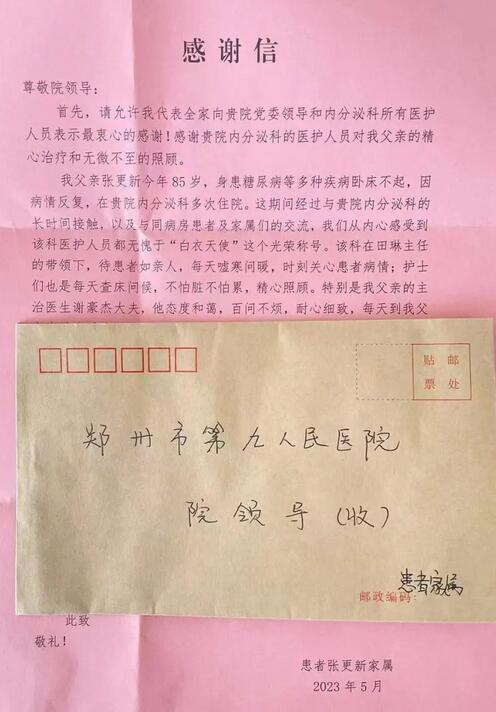 感谢信
尊敬院领导：
首先，请允许我代表全家向贵院党委领导和内分泌科所有医护
人员表示最衷心的感谢！感谢贵院内分泌科的医护人员对我父亲的精
心治疗和无微不至的照顾。
我父亲张更新今年85岁，身患糖尿病等多种疾病卧床不起，因
病情反复，在贵院内分泌科多次住院。这期间经过与贵院内分泌科的
长时间接触，以及与同病房患者及家属们的交流，我们从内心感受到
该科医护人员都无愧于“白衣天使”这个光荣称号。该科在田琳主任
的带领下，待患者如亲人，每天嘘寒问暖，时刻关心患者病情；护士
们也是每天查床问候，不怕脏不怕累，精心照顾。特别是我父亲的主
治医生谢豪杰大夫，他态度和蔼，百问不烦，耐心细致，每天到我父
贴邮
票处
郑州市第九人民医院
院领导（收）
患者家属
邮政编码：
此致
敬礼！
患者张更新家属
2023年5月